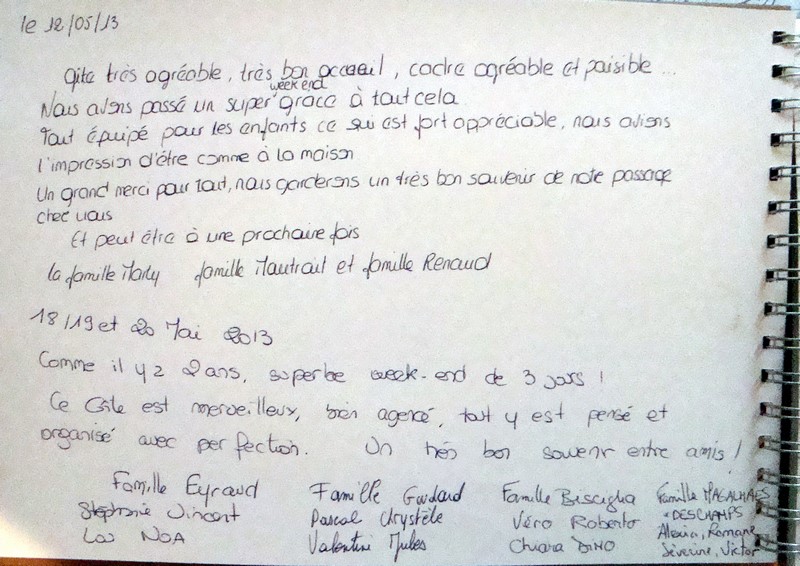 le 12/05/13
Gite très agréable, très bon accueil, cadre agréable et paisible ...
Nous avons passé un super weekend grace à tout cela
Tout équipé pour les enfants ce qui est fort appréciable, nous avions
l'impression d'être comme à la maison
Un grand merci pour tout, nous garderons un très bon souvenir de note passage
chez vous
Et peut être à une prochaine fois
la famille Marly famille Mautrait et famille Renaud
18/19 et 20 Mai 2013
Comme il y 2 ans, superbe week-end de 3 jours !
Ce Gîte est merveilleux, bien agencé, tout y est pensé et
organisé avec perfection. Un très bon souvenir entre amis !
Famille Eyraud Famille Godard Famille Bisciglia Famille MAGALHAES
Stéphanie Vincent Pascal Chrystèle Véro Roberto DESCHAMPS
Lou NOA Valentin Jules Chiara DINO Alexia, Romane
Séverine, Victor